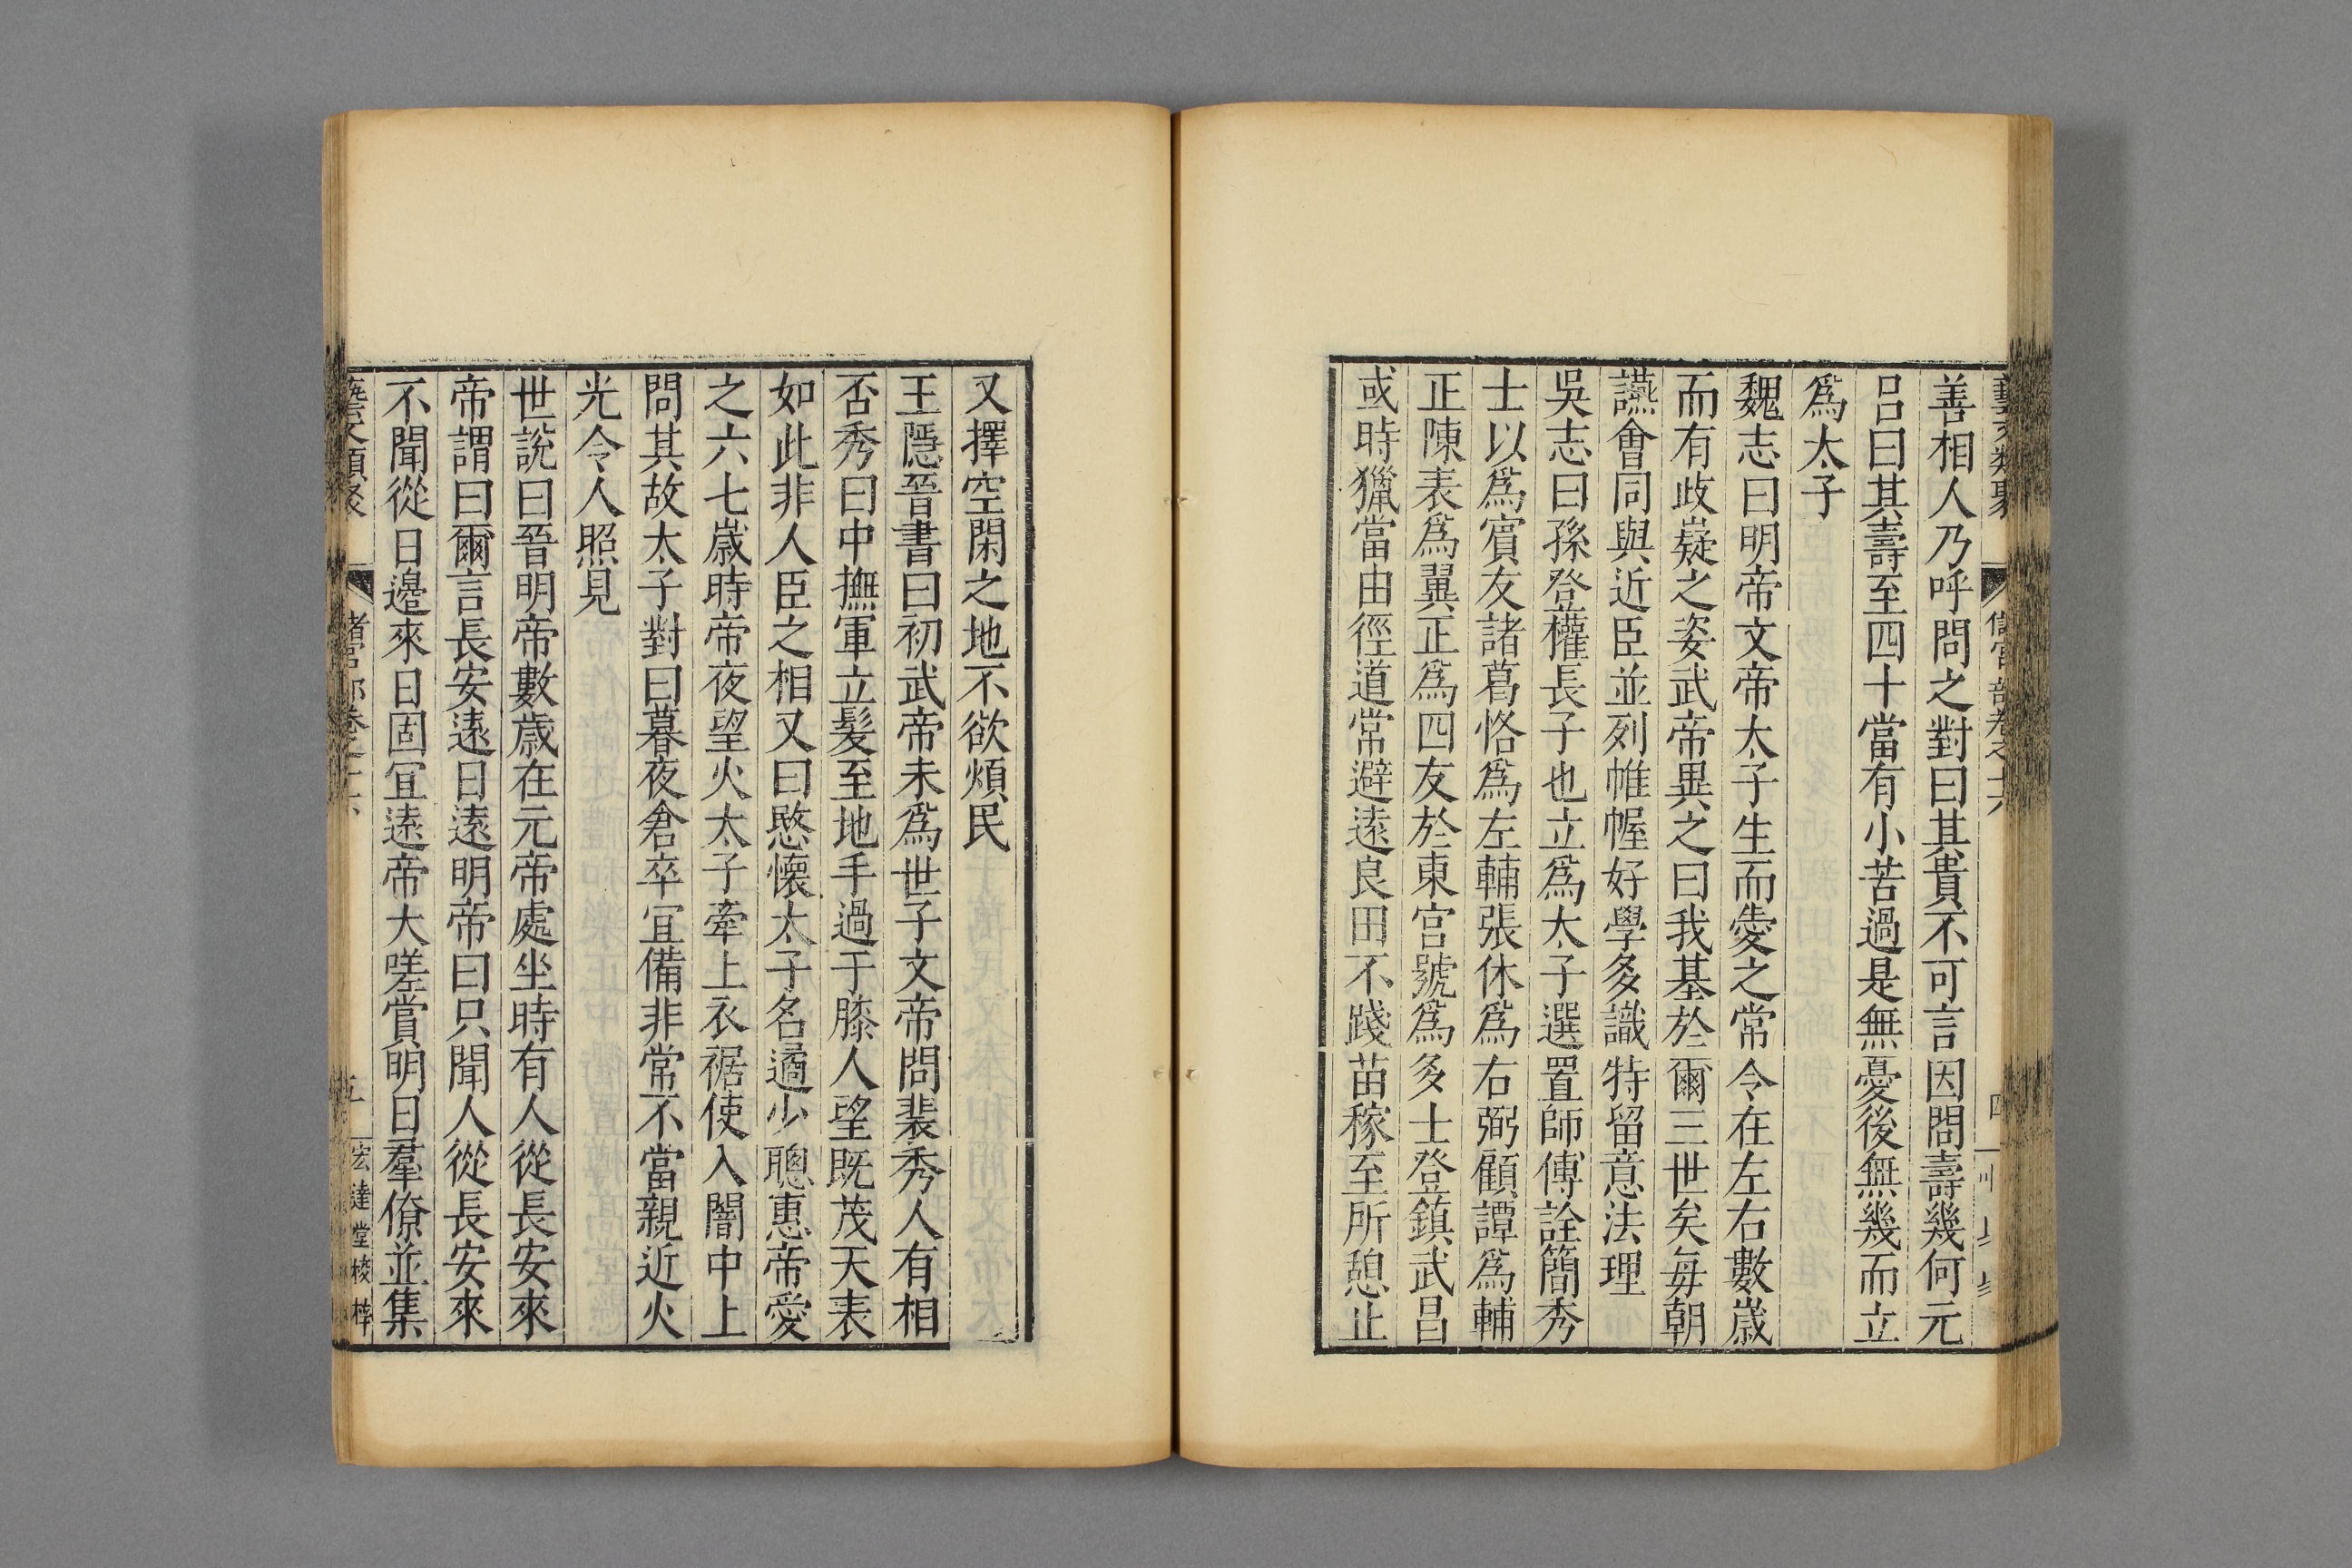 藝文類聚 儲宮部卷之十六 四
善相人乃呼問之對曰其貴不可言因問壽幾何元
吕曰其壽至四十當有小苦過是無憂後無幾而立
爲太子
魏志曰明帝文帝太子生而愛之常令在左右數歲
而有歧嶷之姿武帝異之曰我基於爾三世矣毎朝
讌會同與近臣並列帷幄好學多識特留意法理
吳志曰孫登權長子也立爲太子選置師傅詮簡秀
士以爲賓友諸葛恪爲左輔張休爲右弼顧譚爲輔
正陳表爲翼正爲四友於東宮號爲多士登鎮武昌
或時獵當由徑道常避遠良田不踐苗稼至所憩止
又擇空閑之地不欲煩民
王隱晉書曰初武帝未爲世子文帝問裴秀人有相
否秀曰中撫軍立髮至地手過于膝人望既茂天表
如此非人臣之相又曰愍懷太子名遹少聰惠帝愛
之六七歲時帝夜望火太子牽上衣裾使入闇中上
問其故太子對曰暮夜倉卒宜備非常不當親近火
光令人照見
世說曰晉明帝數歲在元帝處坐時有人從長安來
帝謂曰爾言長安遠日遠明帝曰只聞人從長安來
不聞從日邊來日固宜遠帝大嗟賞明日羣僚並集
藝文類聚 儲宮部卷之十六 五 宏達堂校梓